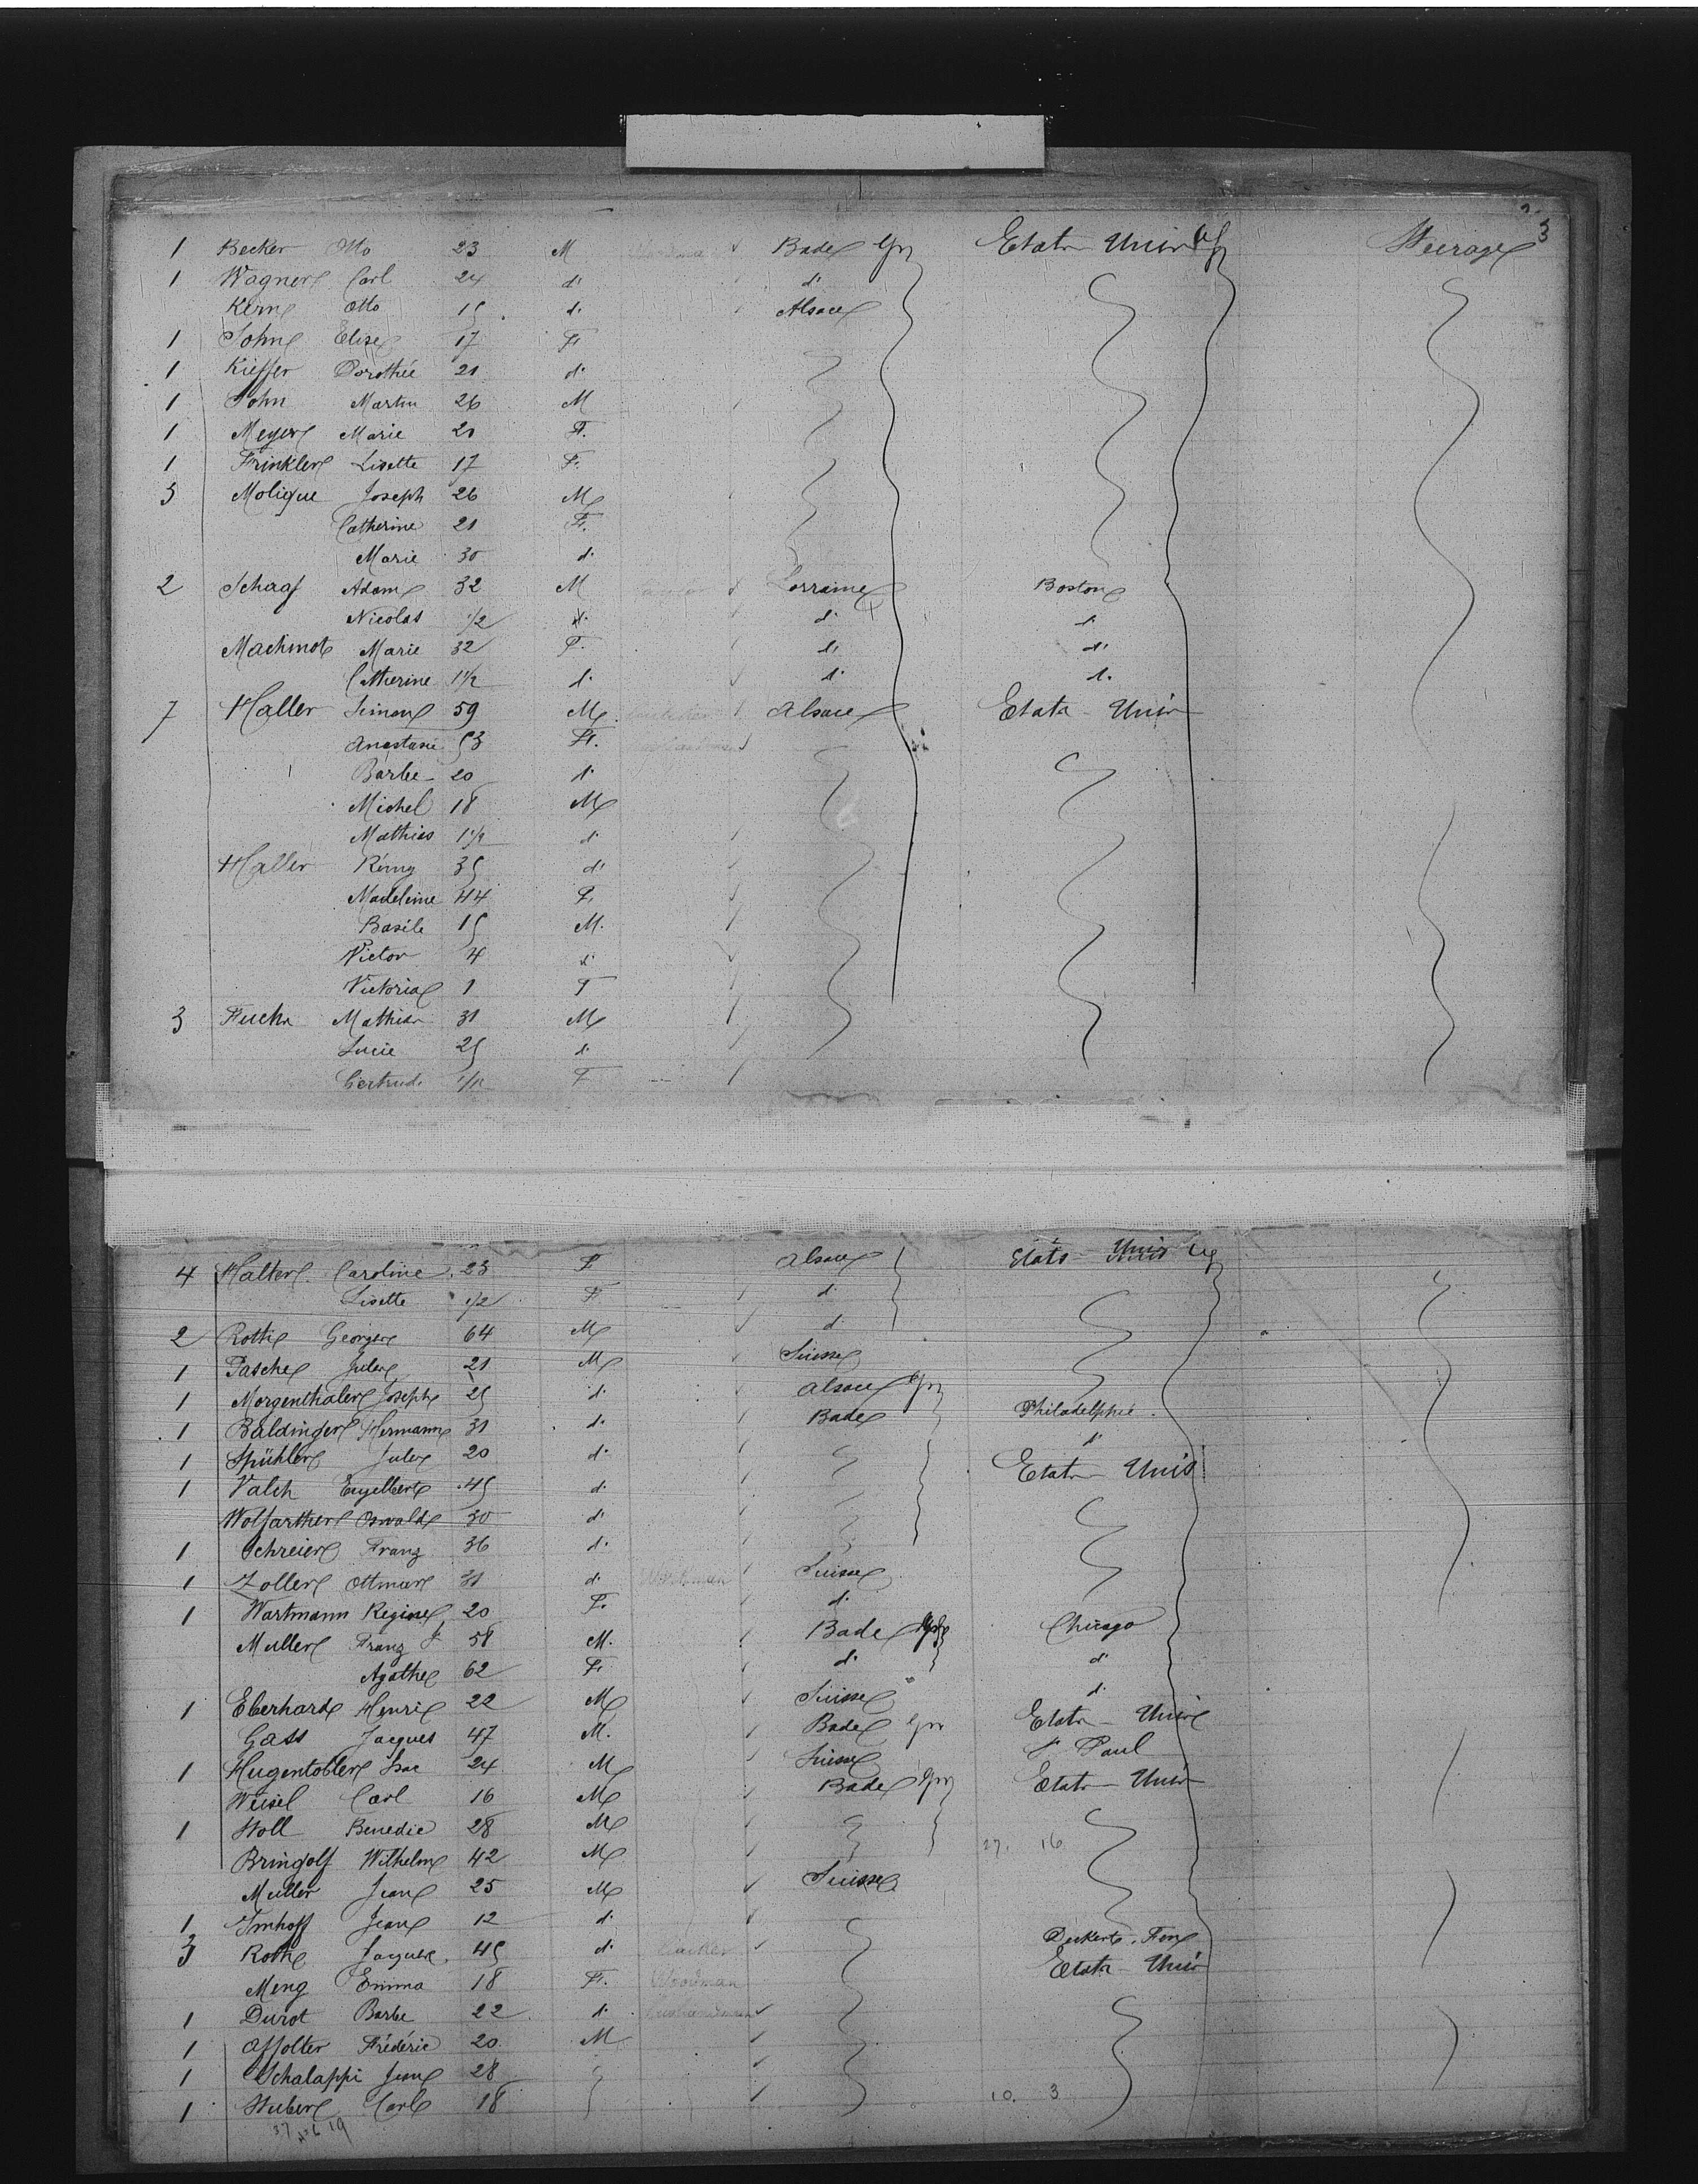 3
1 Becker Otto 23 M Bade Gr Etats Unis Steerage
1 Wagner Carl 24 d: d:
Kern Otto 15 d: Alsace
1 John Elise 17 F.
1 Kieffer Dorothée 21 d:
1 John Martin 26 M
1 Meyer Marie 21 F.
1 Frinkler Lisette 17 F.
3 Molique Joseph 26 M
Catherine 21 F.
Marie 30 d:
2 Schaaf Adam 32 M Lorraine Boston
Nicolas 1/2 d: d: d:
Machinot Marie 32 F. d: d:
Catherine 1 1/2 d: d: d:
7 Haller Simon 59 M Alsace Etats-Unis
Anastasie 53 F.
Barbe 20 d:
Michel 18 M
Mathias 1 1/2 d:
Haller Rémy 35 d:
Madeleine 44 F.
Basile 15 M.
Victor 4 d:
Victoria 1 F
3 Fuchs Mathias 31 M
Lucie 25 d:
Gertrude F
4 Halter Caroline 23 F Alsace Etats-Unis
Lisette 1/2 F d:
2 Roth Georges 64 M d:
1 Pasche Jules 21 M Suisse
1 Morgenthaler Joseph 25 d: Alsace Gr
1 Baldinger Hermann 31 d: Bade Philadelphie
1 Spühler Jules 20 d: d:
1 Valch Engelbert 45 d: Etats-Unis
Wolfarther Oswald 30 d:
1 Schreier Franz 36 d:
1 Zoller Ottmar 31 d: Suisse
1 Wartmann Regine 20 F. d:
Muller Franz J 58 M. Bade Chicago
Agathe 62 F. d: d:
1 Eberhard Henri 22 M Suisse d:
Gass Jacques 47 M. Bade Gr Etats-Unis
1 Hugentobler Isac 24 M Suisse St Paul
Weisel Carl 16 M Bade Gr Etats-Unis
1 Stoll Benedic 28 M
Bringolf Wilhelm 42 M 27. 16
Muller Jean 25 M Suisse
1 Imhoff Jean 12 d:
3 Roth Jacques 45 d:
Meng Emma 18 F. Etats-Unis
1 Durot Barbe 22 d:
1 Affolter Frédéric 20 M
1 Schalappi Jean 28
1 Huber Carl 18 10. 3